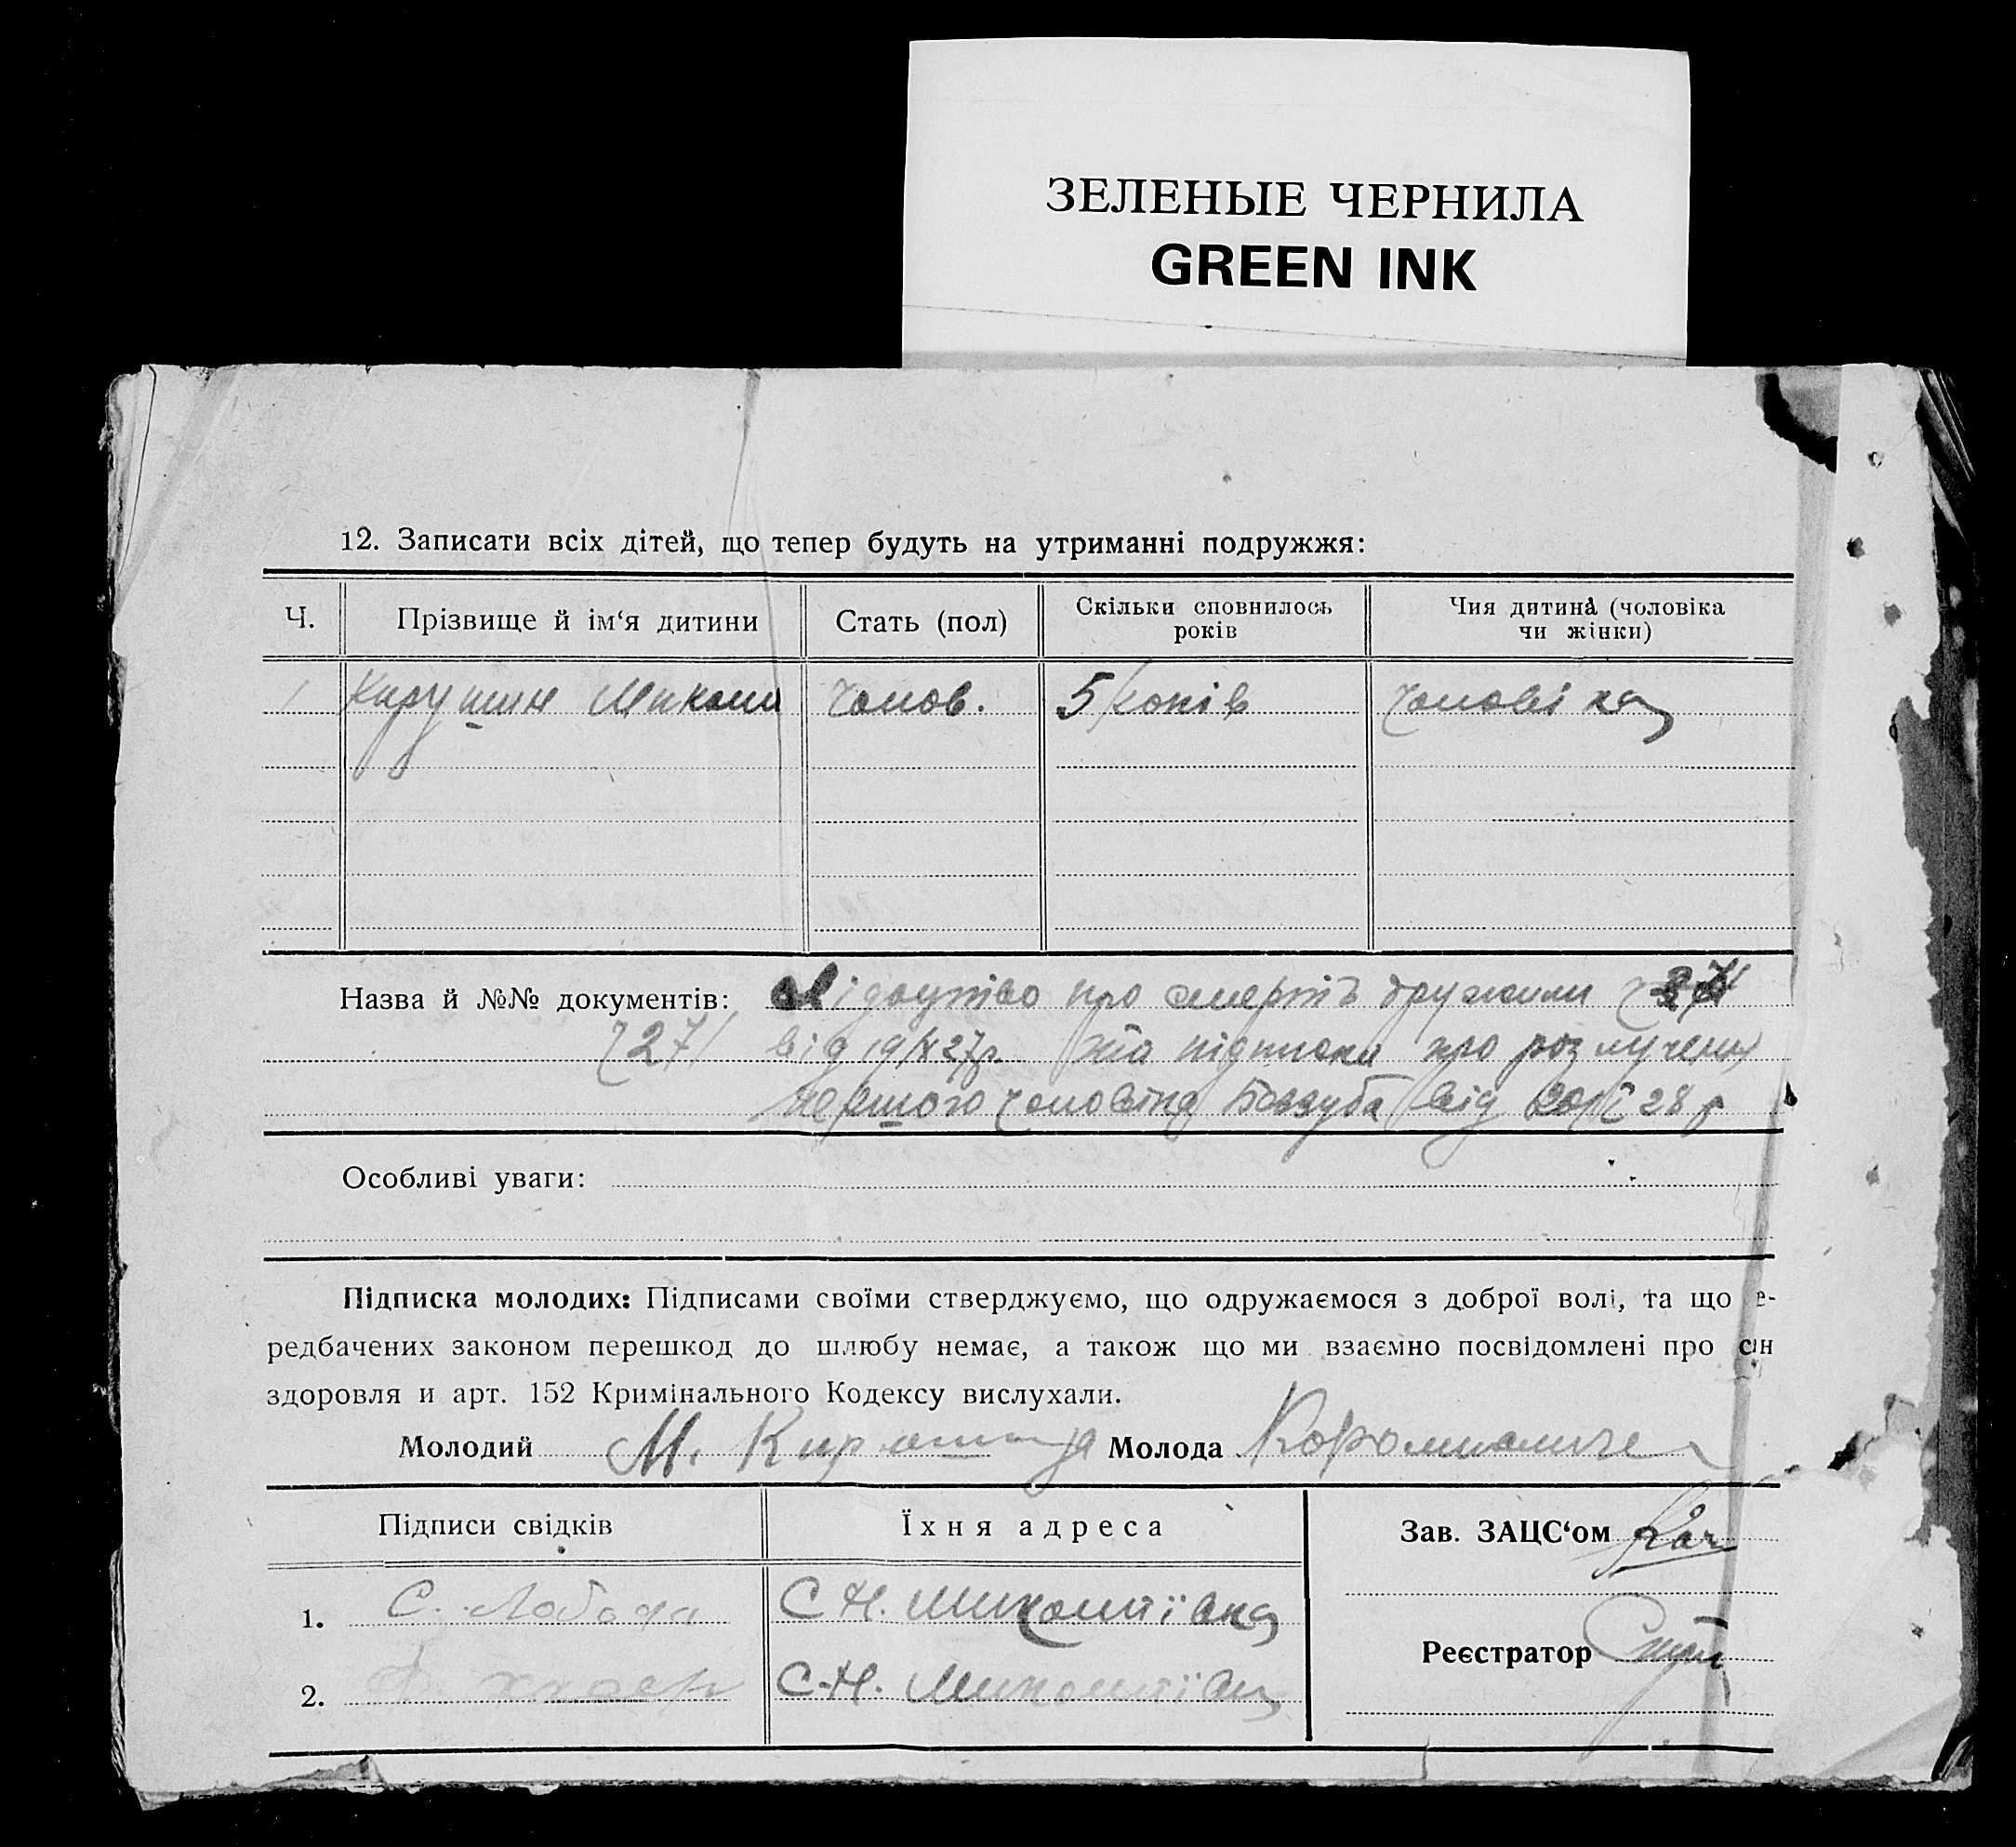 ЗЕЛЕНЫЕ ЧЕРНИЛА
GREEN INK
12. Записати всіх дітей, що тепер будуть на утриманні подружжя:
Ч. Прізвище й ім‘я дитини Стать (пол) Скільки сповнилось років Чия дитина (чоловіка чи жінки)
1 Микола Чолов. 5 років Чоловіка
Назва й №№ документів: про смерть дружини
ч 271 від 19/X 27р. та підписка про
першого чоловіка від 28 р
Особливі уваги:
Підписка молодих: Підписами своїми стверджуємо, що одружаємося з доброї волі, та що е-
редбачених законом перешкод до шлюбу немає, а також що ми взаємно посвідомлені про с н
здоровля и арт. 152 Кримінального Кодексу вислухали.
Молодий М. Молода
Підписи свідків Їхня адреса Зав. ЗАЦС‘ом
1. С. Лобода С Н. Миколаївка
Реєстратор
2. С.Н. Миколаївка